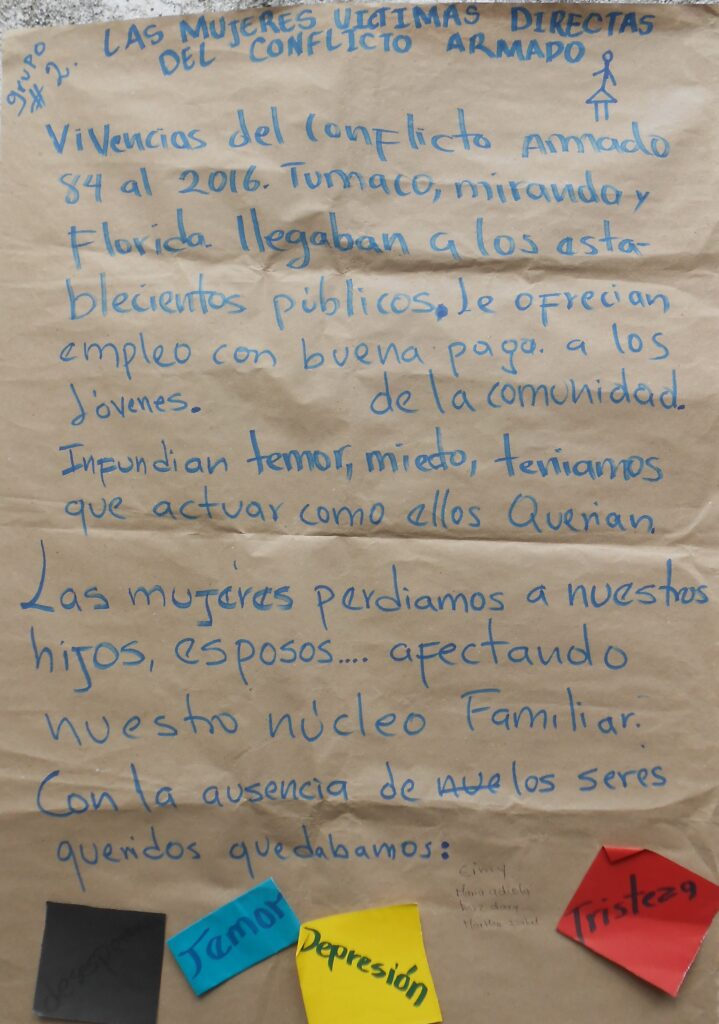 grupo
# 2.
LAS MUJERES VICTIMAS DIRECTAS
DEL CONFLICTO ARMADO
ViVencias del Conflicto Armado
84 al 2016. Tumaco, miranda y
Florida. llegaban a los esta-
blecientos públicos. le ofrecian
empleo con buena paga. a los
Jóvenes. de la comunidad.
Infundian temor, miedo, teniamos
que actuar como ellos Querian.
Las mujeres perdiamos a nuestros
hijos, esposos.... afectando
nuestro núcleo Familiar.
Con la ausencia de nue los seres
queridos quedabamos:
Temor
Depresión
Tristeza